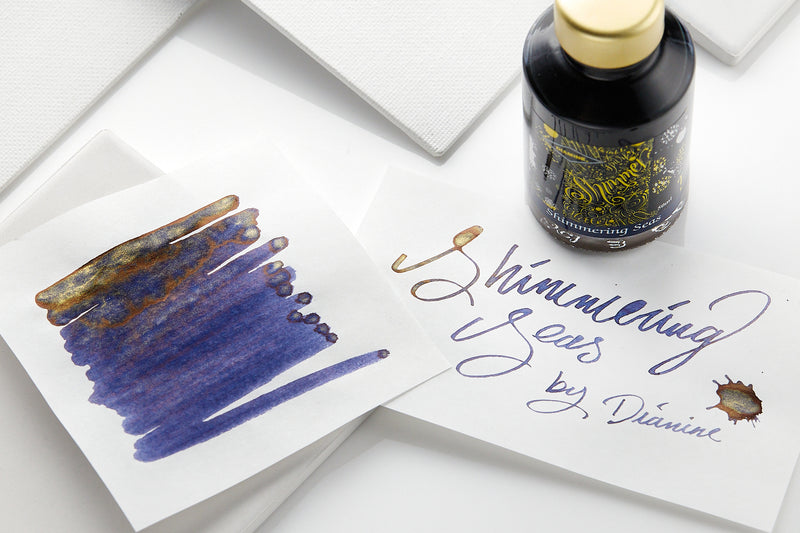 Shimmer
Shimmering Seas
Shimmering
Seas
by Dianine